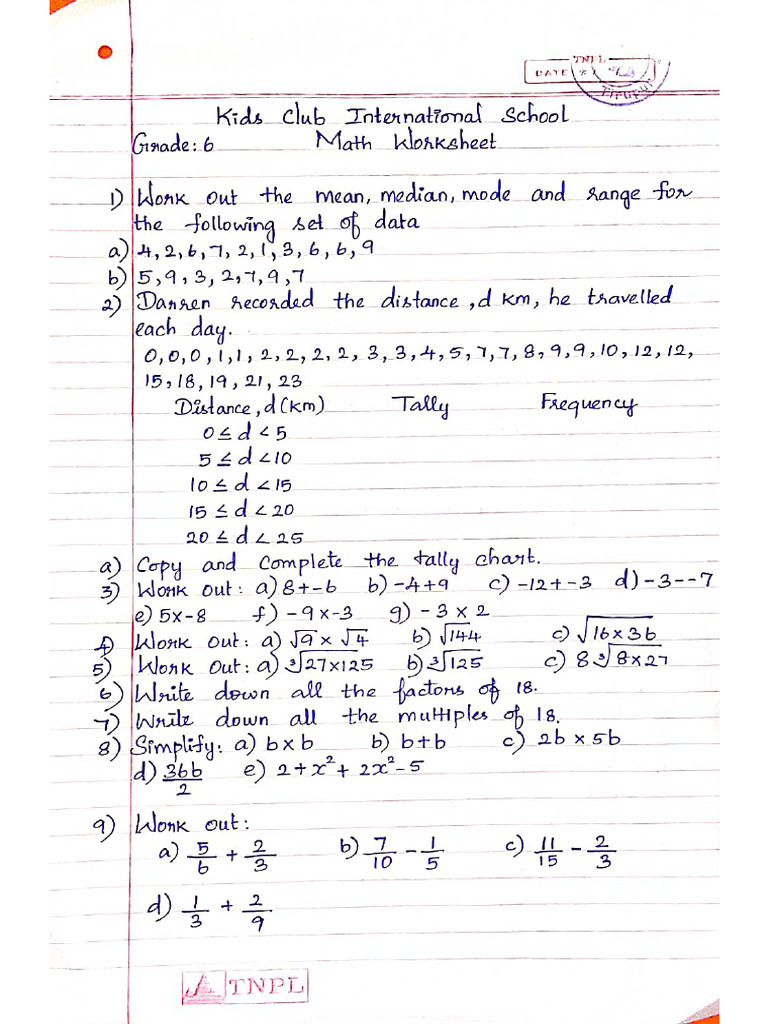 TNPL
DATE
Tirupur
Kids Club International School
Grade: 6 Math Worksheet
1) Work out the mean, median, mode and range for
the following set of data
a) 4, 2, 6, 7, 2, 1, 3, 6, 6, 9
b) 5, 9, 3, 2, 7, 9, 7
2) Darren recorded the distance, d km, he travelled
each day.
0, 0, 0, 1, 1, 2, 2, 2, 2, 3, 3, 4, 5, 7, 7, 8, 9, 9, 10, 12, 12,
15, 18, 19, 21, 23
Distance, d (km) Tally Frequency
0 ≤ d < 5
5 ≤ d < 10
10 ≤ d < 15
15 ≤ d < 20
20 ≤ d < 25
a) Copy and complete the tally chart.
3) Work out: a) 8 + -6 b) -4 + 9 c) -12 + -3 d) -3 - -7
e) 5x - 8 f) -9 x -3 g) -3 x 2
4) Work out: a) √9 × √4 b) √144 c) √16 × 36
5) Work out: a) ³√27×125 b) ³√125 c) 8 ³√8×27
6) Write down all the factors of 18.
7) Write down all the multiples of 18.
8) Simplify: a) b × b b) b + b c) 2b × 5b
d) 36b/2 e) 2 + x² + 2x² - 5
9) Work out:
a) 5/6 + 2/3 b) 7/10 - 1/5 c) 11/15 - 2/3
d) 1/3 + 2/9
TNPL